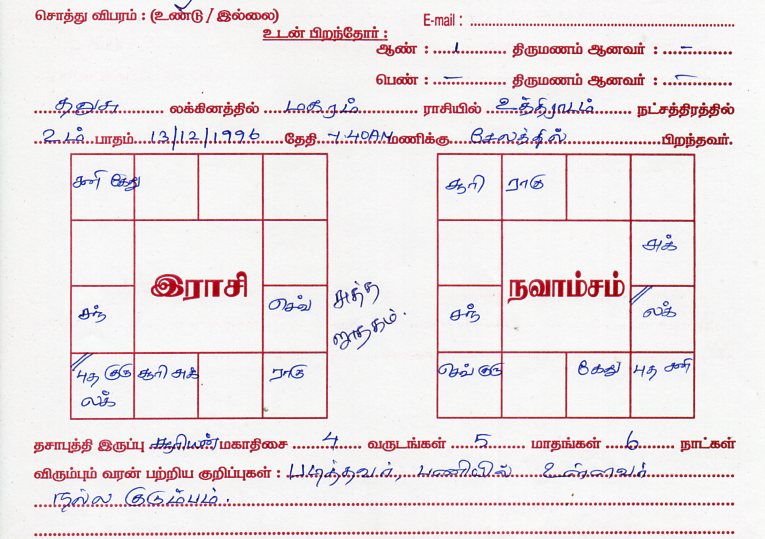 சொத்து விபரம் : (உண்டு / இல்லை) E-mail :
உடன் பிறந்தோர் :
ஆண் : 1 திருமணம் ஆனவர் : –
பெண் : – திருமணம் ஆனவர் : –
தனுசு லக்கினத்தில் மகரம் ராசியில் உத்திராடம் நட்சத்திரத்தில்
2ம் பாதம் 13/12/1996 தேதி 7.40AM மணிக்கு சேலத்தில் பிறந்தவர்.
சனி கேது
இராசி
சந்
செவ்
புத குரு லக்
சூரி சுக்
ராகு
சுத்த ஜாதகம்.
சூரி ராகு
சுக்
நவாம்சம்
சந்
லக்
செவ் குரு
கேது
புத சனி
தசாபுத்தி இருப்பு சூரியன் மகாதிசை 4 வருடங்கள் 5 மாதங்கள் 6 நாட்கள்
விரும்பும் வரன் பற்றிய குறிப்புகள் : படித்தவர், பணியில் உள்ளவர்
நல்ல குடும்பம்.